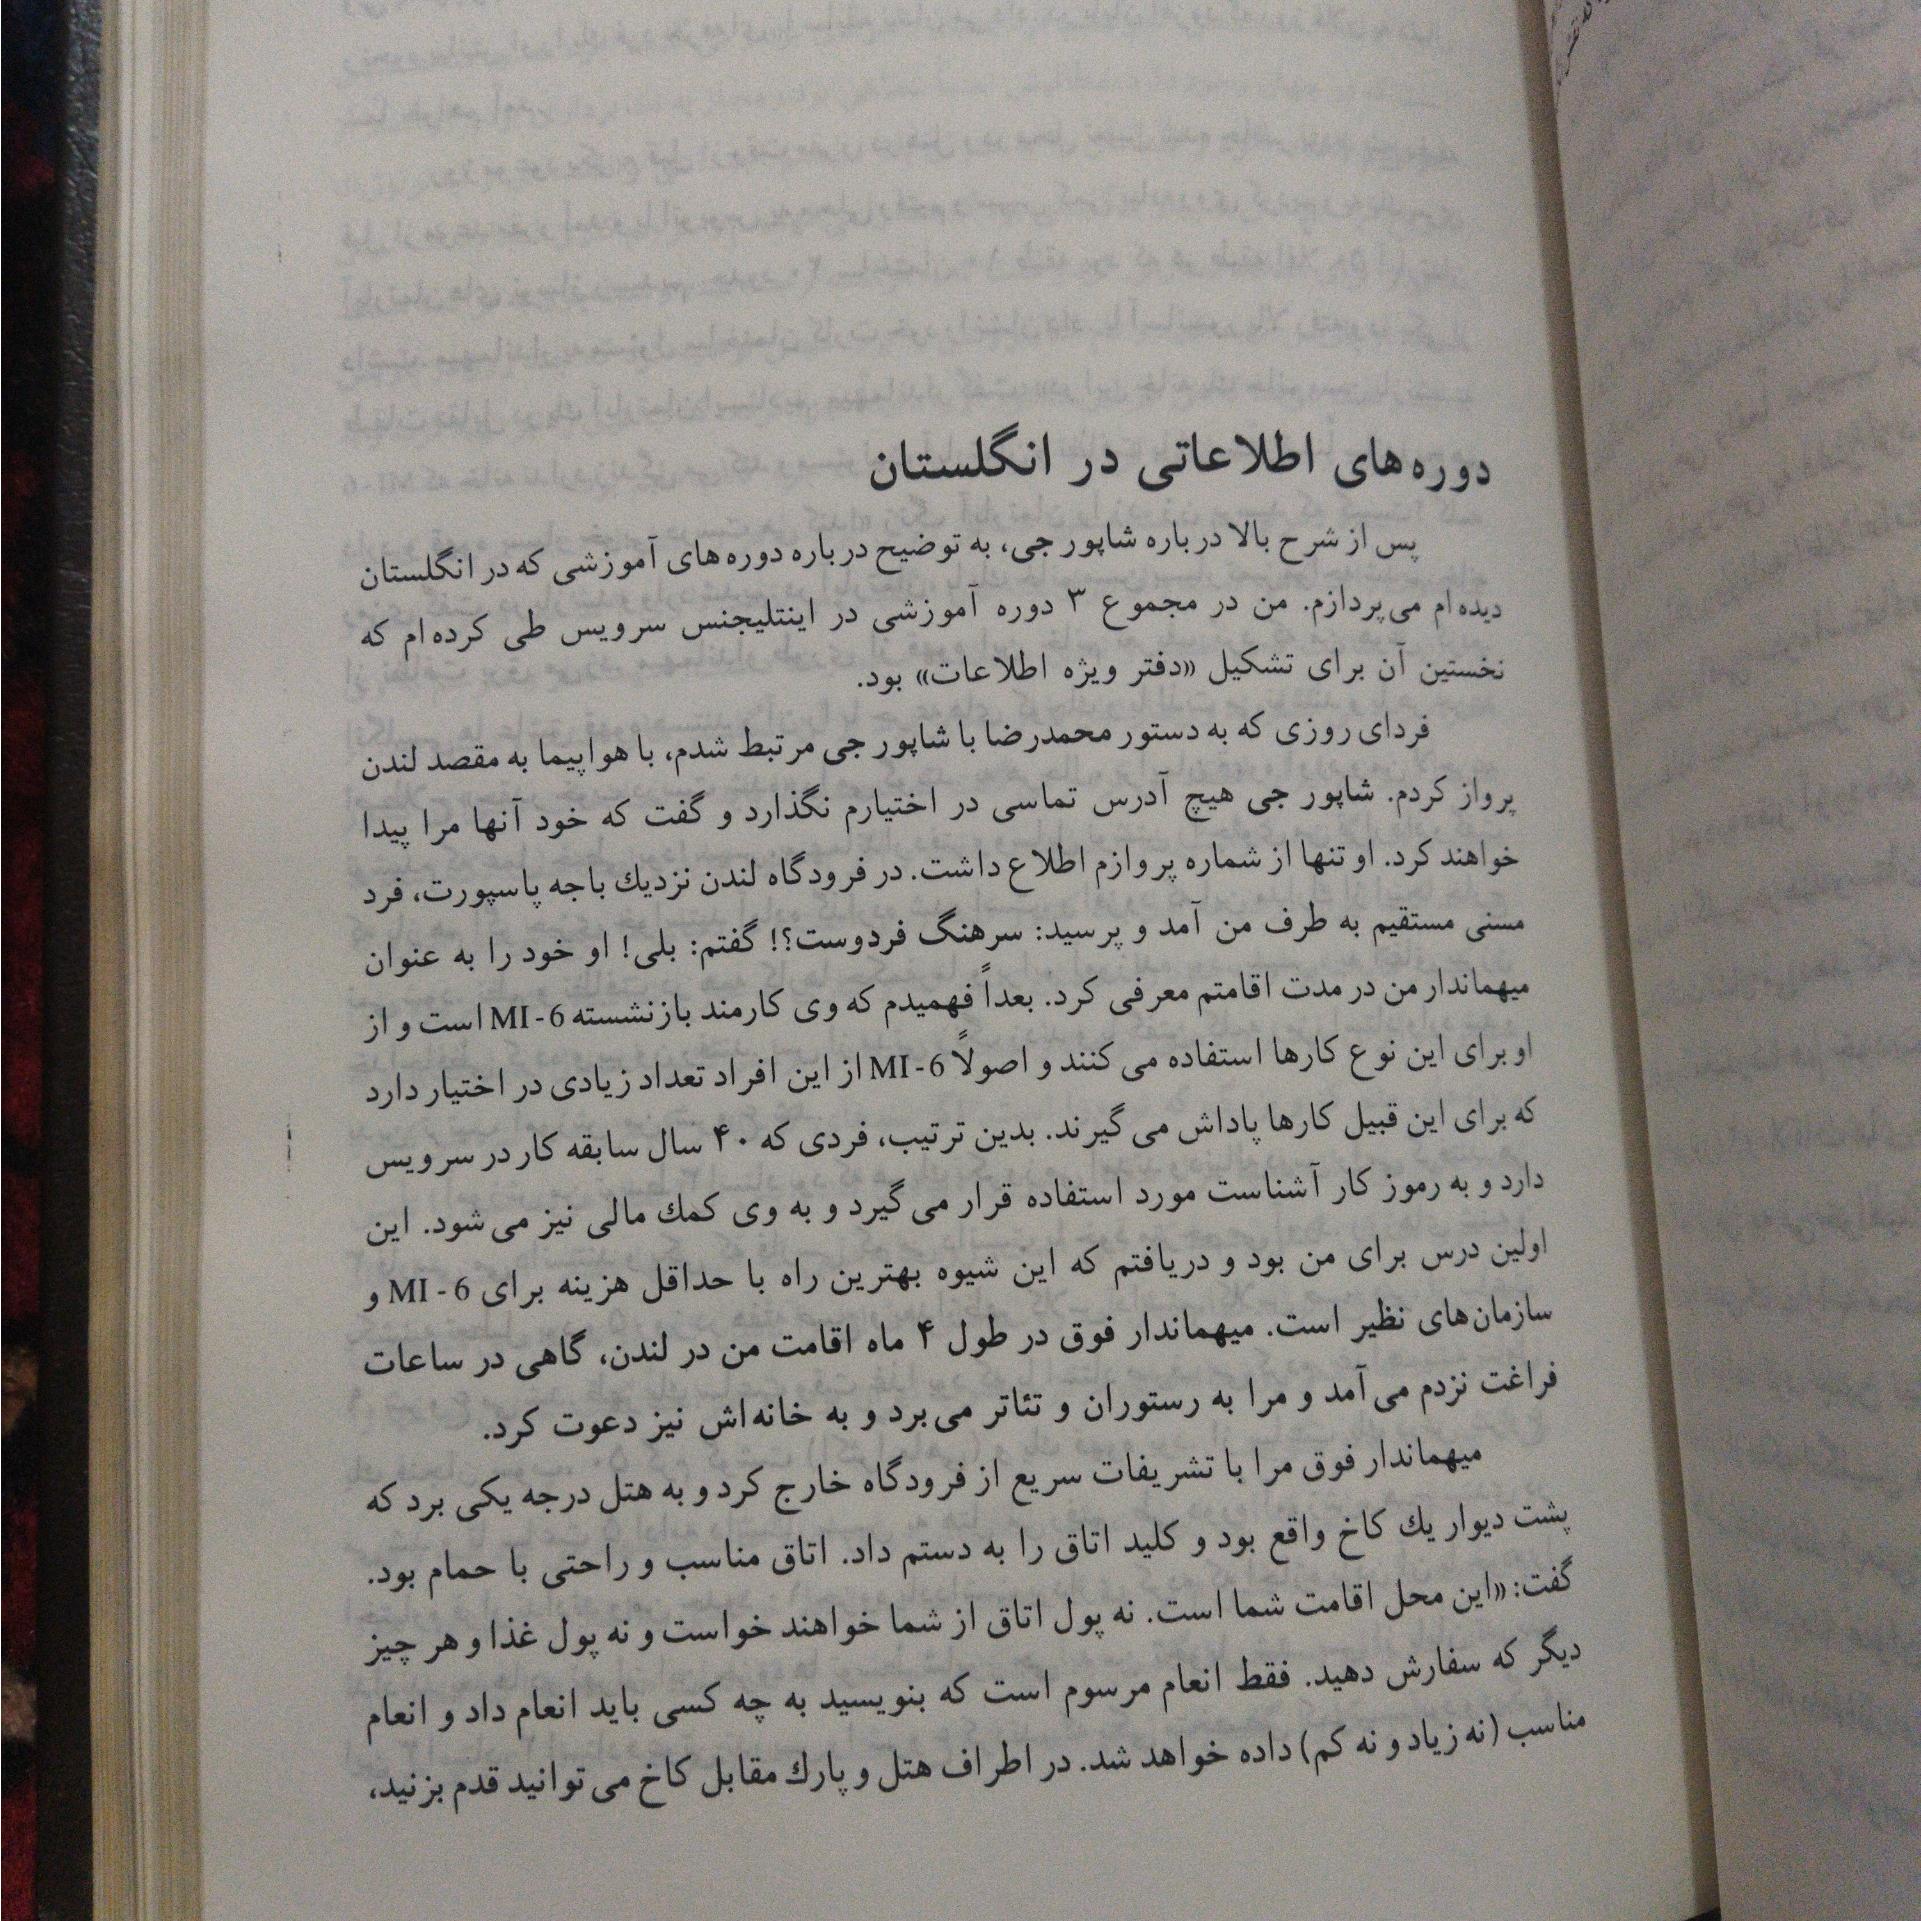 دوره‌های اطلاعاتی در انگلستان
پس از شرح بالا درباره شاپور جی، به توضیح درباره دوره‌های آموزشی که در انگلستان
دیده‌ام می‌پردازم. من در مجموع ۳ دوره آموزشی در اینتلیجنس سرویس طی کرده‌ام که
نخستین آن برای تشکیل «دفتر ویژه اطلاعات» بود.
فردای روزی که به دستور محمدرضا با شاپور جی مرتبط شدم، با هواپیما به مقصد لندن
پرواز کردم. شاپور جی هیچ آدرس تماسی در اختیارم نگذارد و گفت که خود آنها مرا پیدا
خواهند کرد. او تنها از شماره پروازم اطلاع داشت. در فرودگاه لندن نزدیك باجه پاسپورت، فرد
مسنی مستقیم به طرف من آمد و پرسید: سرهنگ فردوست؟! گفتم: بلی! او خود را به عنوان
میهماندار من در مدت اقامتم معرفی کرد. بعداً فهمیدم که وی کارمند بازنشسته MI-6 است و از
او برای این نوع کارها استفاده می‌کنند و اصولاً MI-6 از این افراد تعداد زیادی در اختیار دارد
که برای این قبیل کارها پاداش می‌گیرند. بدین ترتیب، فردی که ۴۰ سال سابقه کار در سرویس
دارد و به رموز کار آشناست مورد استفاده قرار می‌گیرد و به وی کمك مالی نیز می‌شود. این
اولین درس برای من بود و دریافتم که این شیوه بهترین راه با حداقل هزینه برای MI-6 و
سازمان‌های نظیر است. میهماندار فوق در طول ۴ ماه اقامت من در لندن، گاهی در ساعات
فراغت نزدم می‌آمد و مرا به رستوران و تئاتر می‌برد و به خانه‌اش نیز دعوت کرد.
میهماندار فوق مرا با تشریفات سریع از فرودگاه خارج کرد و به هتل درجه یکی برد که
پشت دیوار یك کاخ واقع بود و کلید اتاق را به دستم داد. اتاق مناسب و راحتی با حمام بود.
گفت: «این محل اقامت شما است. نه پول اتاق از شما خواهند خواست و نه پول غذا و هر چیز
دیگر که سفارش دهید. فقط انعام مرسوم است که بنویسید به چه کسی باید انعام داد و انعام
مناسب (نه زیاد و نه کم) داده خواهد شد. در اطراف هتل و پارك مقابل کاخ می‌توانید قدم بزنید،